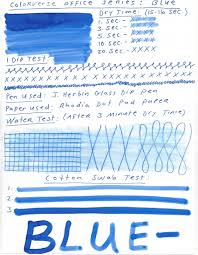 Colorverse Office Series: Blue
Dry Time (15-16 Sec.)
1. Sec - XXXX
3. Sec - XXXX
5. Sec - XXXX
10. Sec - XXXX
20. Sec - XXXX
1 Dip Test
XXXXXXXXXXXXXXXXXXXXXXXXXXXXXXX
Pen Used: J. Herbin Glass Dip Pen
Paper Used: Rhodia Dot Pad Paper
Water Test: (After 3 Minute Dry Time)
Cotton Swab Test:
1.
2.
3.
BLUE-